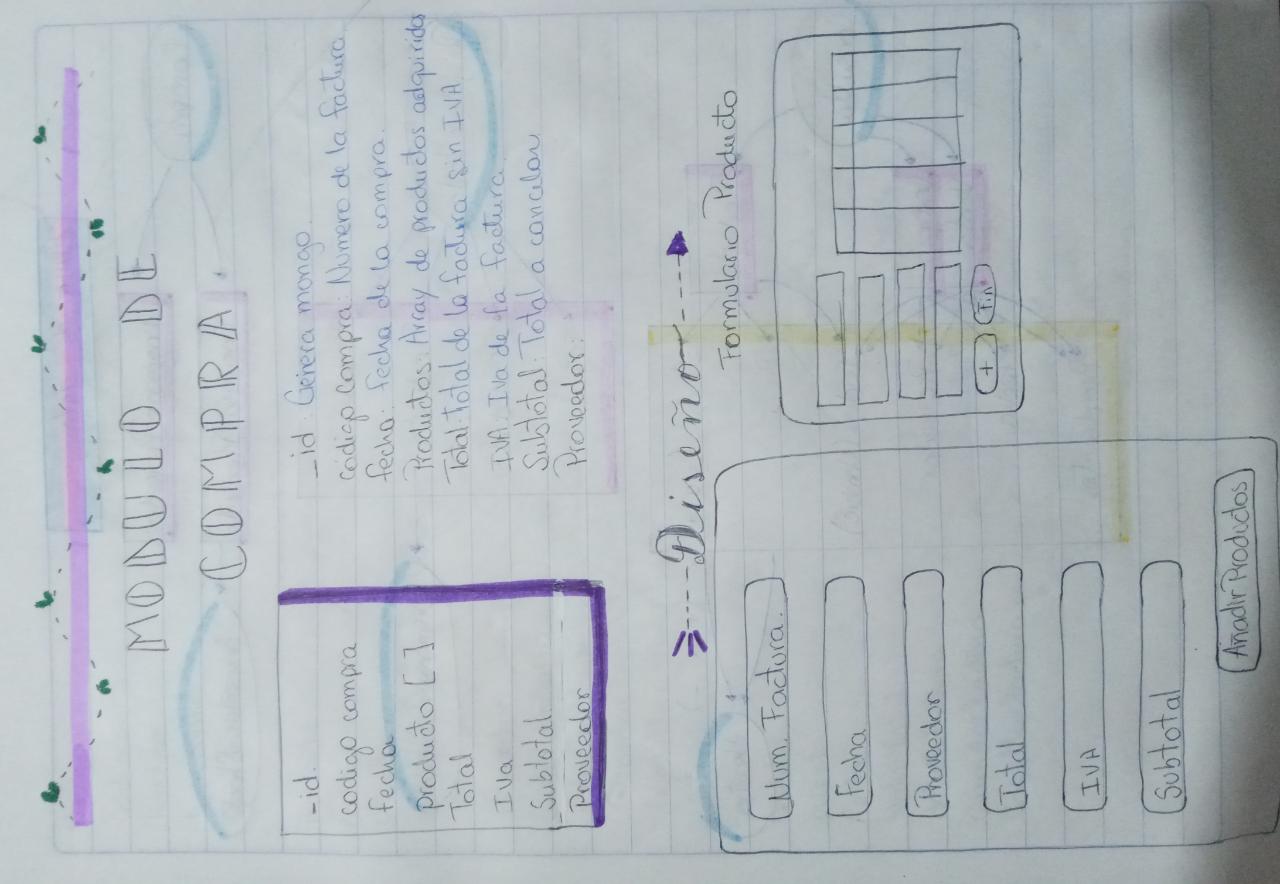 MODULO DE
COMPRA
_id.
codigo compra
fecha
producto [ ]
Total
Iva
Subtotal
Proveedor
_id: Genera mongo.
codigo compra: Numero de la factura
fecha: fecha de la compra.
Productos: Array de productos adquiridos
Total: Total de la factura sin IVA
IVA: Iva de la factura.
Subtotal: Total a cancelar
Proveedor:
Diseño
Num. Factura.
Fecha
Proveedor
Total
IVA
Subtotal
Añadir Productos
Formulario Producto
+
Fin